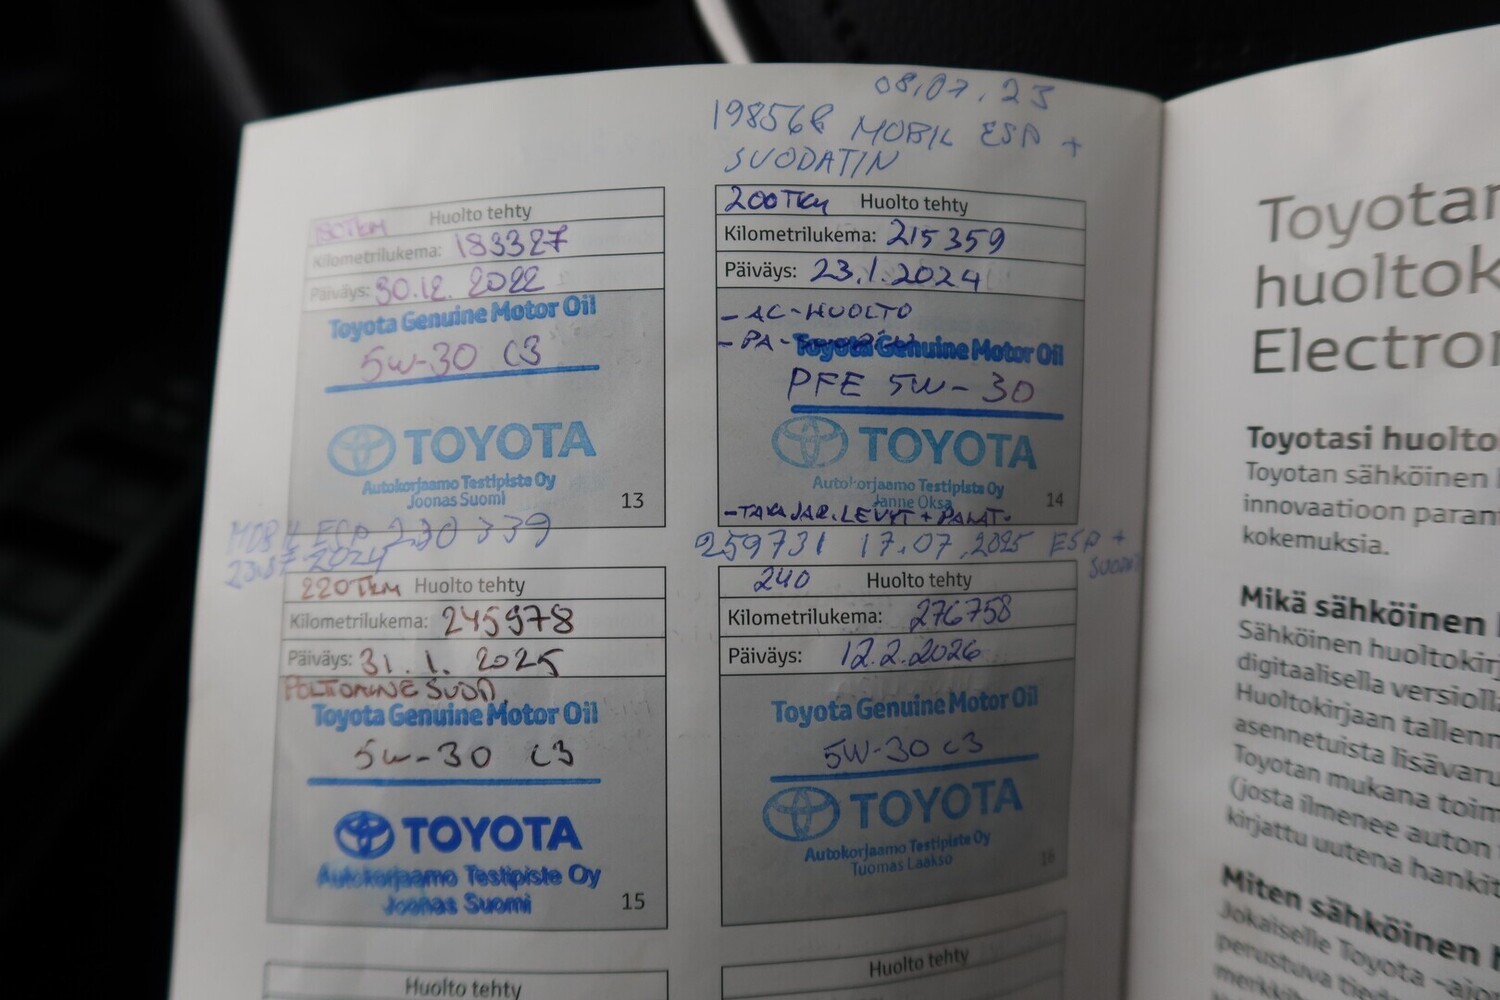 08.07.23
198568 MOBIL ESP +
SUODATIN
180TKM Huolto tehty
Kilometrilukema: 183327
Päiväys: 30.12. 2022
Toyota Genuine Motor Oil
5W-30 C3
TOYOTA
Autokorjaamo Testipiste Oy
Joonas Suomi
13
200TKM Huolto tehty
Kilometrilukema: 215359
Päiväys: 23.1.2024
- AC-HUOLTO
- PA-
Toyota Genuine Motor Oil
PFE 5W-30
TOYOTA
Autokorjaamo Testipiste Oy
Janne Oksa
14
-TAKAJAR.LEVYT + PALAT-
MOBIL ESP 230339
23.07 2024
220TKM Huolto tehty
Kilometrilukema: 245978
Päiväys: 31.1. 2025
POLTTOAINE SUOD.
Toyota Genuine Motor Oil
5W-30 C3
TOYOTA
Autokorjaamo Testipiste Oy
Joonas Suomi
15
259731 17.07.2025 ESP +
SUODAT
240 Huolto tehty
Kilometrilukema: 276758
Päiväys: 12.2.2026
Toyota Genuine Motor Oil
5W-30 C3
TOYOTA
Autokorjaamo Testipiste Oy
Tuomas Laakso
16
Huolto tehty
Huolto tehty
Toyotan
huoltok
Electron
Toyotasi huolto
Toyotan sähköinen
innovaatioon param
kokemuksia.
Mikä sähköinen
Sähköinen huoltokirj
digitaalisella versioll
Huoltokirjaan tallenn
asennetuista lisävaru
Toyotan mukana toim
(josta ilmenee auton
kirjattu uutena hankit
Miten sähköinen h
Jokaiselle Toyota -ajon
perustuva tied
merkki